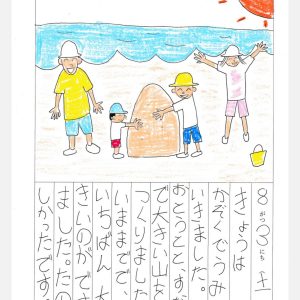 8がつ にち 土
きょうは
かぞくでうみ
いきました。
おとうとと、すな
で大きい山を
つくりました
いままでで、
いちばん大
きいのがで
ました。たの
しかったです